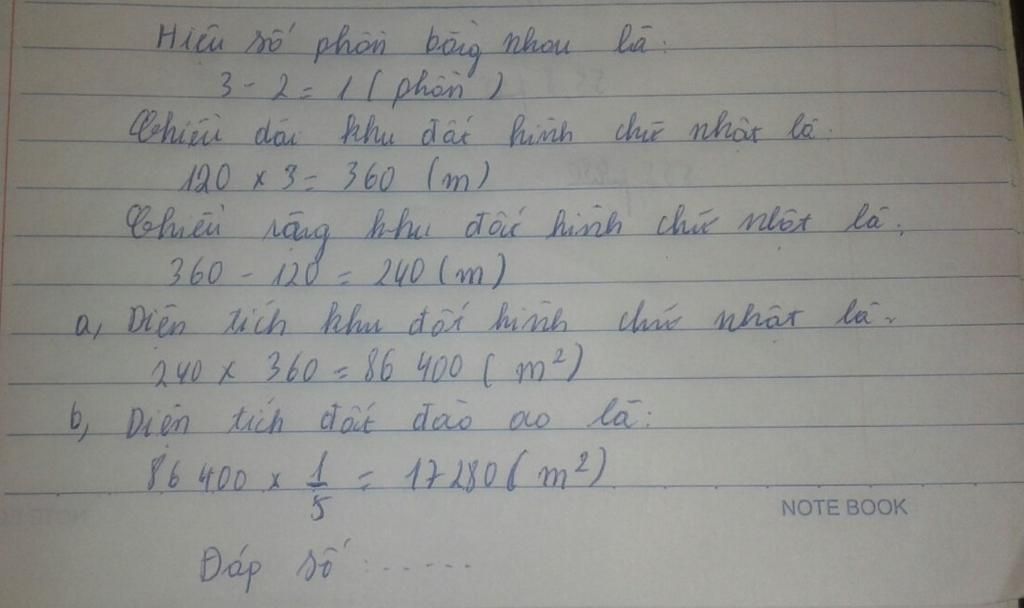 Hiệu số phần bằng nhau là:
3 - 2 = 1 ( phần )
Chiều dài khu đất hình chữ nhật là.
120 × 3 = 360 (m)
Chiều rộng khu đất hình chữ nhật là:
360 - 120 = 240 (m)
a, Diện tích khu đất hình chữ nhật là.
240 × 360 = 86 400 ( m²)
b, Diện tích đất đào ao là:
86 400 × 1/5 = 17 280 ( m²)
NOTE BOOK
Đáp số : ......